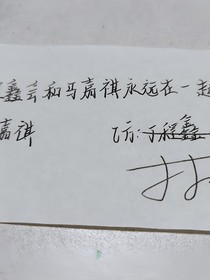 鑫会和马嘉祺永远在一起
嘉祺 飞行:丁程鑫